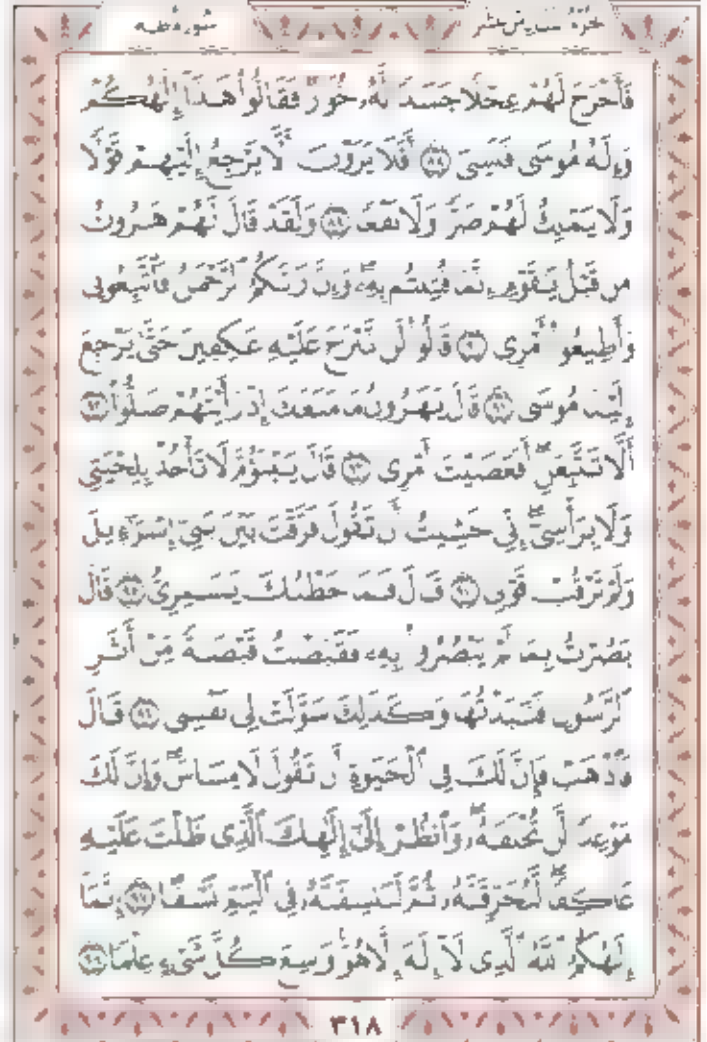 سورة طه
الجزء السادس عشر
فَأَخْرَجَ لَهُمْ عِجْلًا جَسَدًا لَّهُۥ خُوَارٌ فَقَالُوا۟ هَـٰذَآ إِلَـٰهُكُمْ
وَإِلَـٰهُ مُوسَىٰ فَنَسِىَ ٨٨ أَفَلَا يَرَوْنَ أَلَّا يَرْجِعُ إِلَيْهِمْ قَوْلًا
وَلَا يَمْلِكُ لَهُمْ ضَرًّا وَلَا نَفْعًا ٨٩ وَلَقَدْ قَالَ لَهُمْ هَـٰرُونُ
مِن قَبْلُ يَـٰقَوْمِ إِنَّمَا فُتِنتُم بِهِۦ وَإِنَّ رَبَّكُمُ ٱلرَّحْمَـٰنُ فَٱتَّبِعُونِى
وَأَطِيعُوٓا۟ أَمْرِى ٩٠ قَالُوا۟ لَن نَّبْرَحَ عَلَيْهِ عَـٰكِفِينَ حَتَّىٰ يَرْجِعَ
إِلَيْنَا مُوسَىٰ ٩١ قَالَ يَـٰهَـٰرُونُ مَا مَنَعَكَ إِذْ رَأَيْتَهُمْ ضَلُّوٓا۟ ٩٢
أَلَّا تَتَّبِعَنِ أَفَعَصَيْتَ أَمْرِى ٩٣ قَالَ يَبْنَؤُمَّ لَا تَأْخُذْ بِلِحْيَتِى
وَلَا بِرَأْسِىٓ إِنِّى خَشِيتُ أَن تَقُولَ فَرَّقْتَ بَيْنَ بَنِىٓ إِسْرَٰٓءِيلَ
وَلَمْ تَرْقُبْ قَوْلِى ٩٤ قَالَ فَمَا خَطْبُكَ يَـٰسَـٰمِرِىُّ ٩٥ قَالَ
بَصُرْتُ بِمَا لَمْ يَبْصُرُوا۟ بِهِۦ فَقَبَضْتُ قَبْضَةً مِّنْ أَثَرِ
ٱلرَّسُولِ فَنَبَذْتُهَا وَكَذَٰلِكَ سَوَّلَتْ لِى نَفْسِى ٩٦ قَالَ
فَٱذْهَبْ فَإِنَّ لَكَ فِى ٱلْحَيَوٰةِ أَن تَقُولَ لَا مِسَاسَ وَإِنَّ لَكَ
مَوْعِدًا لَّن تُخْلَفَهُۥ وَٱنظُرْ إِلَىٰٓ إِلَـٰهِكَ ٱلَّذِى ظَلْتَ عَلَيْهِ
عَاكِفًا لَّنُحَرِّقَنَّهُۥ ثُمَّ لَنَنسِفَنَّهُۥ فِى ٱلْيَمِّ نَسْفًا ٩٧ إِنَّمَآ
إِلَـٰهُكُمُ ٱللَّهُ ٱلَّذِى لَآ إِلَـٰهَ إِلَّا هُوَ وَسِعَ كُلَّ شَىْءٍ عِلْمًا ٩٨
٣١٨